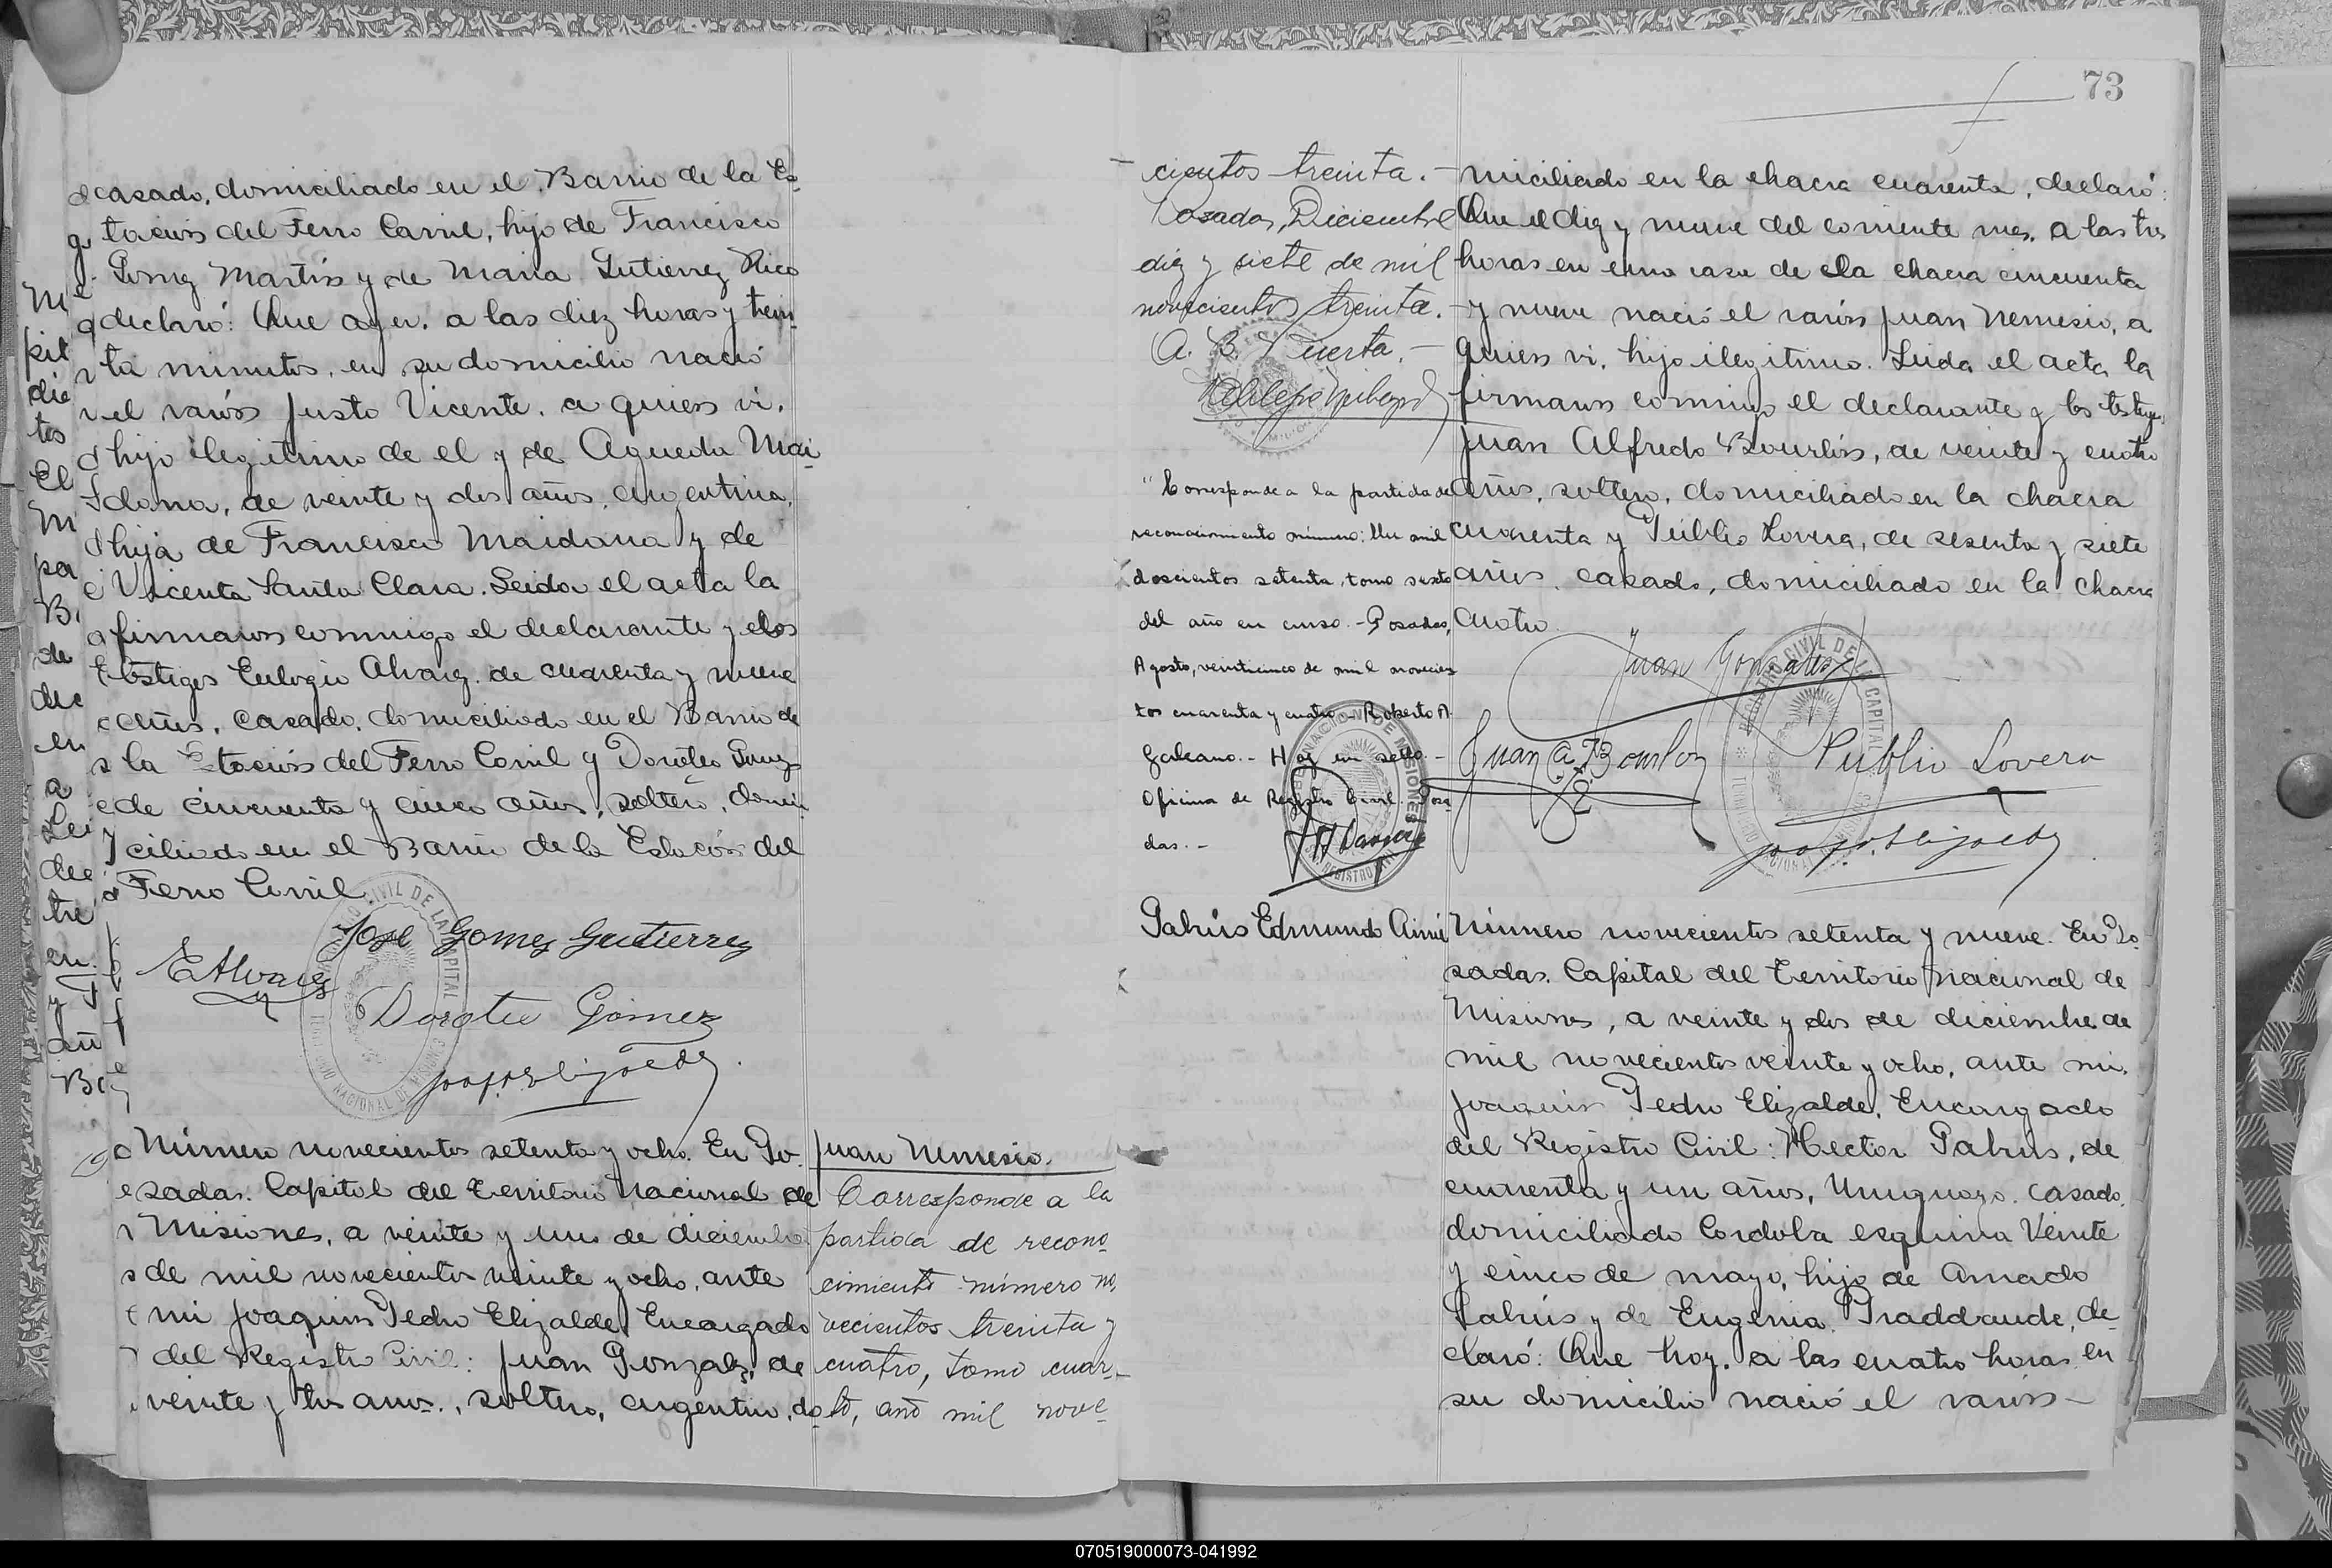 casado, domiciliado en el Barrio de la Es-
tacion del Ferro Carril, hijo de Francisco
Gomez Martin y de Maria Gutierrez Rico
declaró: Que ayer, a las diez horas y trein-
ta minutos, en su domicilio nació
el varón Justo Vicente, a quien vi,
hijo ilegitimo de el y de Agueda Mai-
dana, de veinte y dos años, argentina,
hija de Francisco Maidana y de
Vicenta Santa Clara. Leida el acta la
firmaron conmigo el declarante y los
testigos Eulogio Alvarez, de cuarenta y nueve
años, casado, domiciliado en el Barrio de
la Estacion del Ferro Carril y Doroteo Gomez
de cincuenta y cinco años, soltero, domi-
ciliado en el Barrio de la Estacion del
Ferro Carril
Jose Gomez Gutierrez
E Alvarez
Doroteo Gómez
Número novecientos setenta y ocho. En Po-
sadas. Capital del Territorio Nacional de
Misiones, a veinte y uno de diciembre
de mil novecientos veinte y ocho, ante
mi Joaquin Pedro Elizalde, Encargado
del Registro Civil: Juan Gonzalez, de
veinte y tres anos, soltero, argentino, do-
Juan Nemesio.
Corresponde a la
partida de recono-
cimiento número no-
vecientos treinta y
cuatro, tomo cuar-
to, año mil nove-
73
cientos treinta.-
Posadas, Diciembre
diez y siete de mil
novecientos treinta.-
A. B. Puerta.-
"Corresponde a la partida de
reconocimiento número: Un mil
doscientos setenta, tomo sexto
del año en curso.- Posadas,
Agosto, veinticinco de mil novecien
tos cuarenta y cuatro.- Roberto A.
Galeano.- Hay un sello.-
Oficina de Registro Civil. Posa-
das.-
miciliado en la chacra cuarenta, declaró:
Que el diez y nueve del corriente mes, a las tres
horas en una casa de la chacra cincuenta
y nueve nació el varón Juan Nemesio, a
quien vi, hijo ilegitimo. Leida el acta la
firmaron conmigo el declarante y los testigos
Juan Alfredo Bourlon, de veinte y cuatro
años, soltero, domiciliado en la chacra
cuarenta y Publio Lovera, de sesenta y siete
años, casado, domiciliado en la chacra
cuatro
Juan Gonzalez
Juan A. Bourlon
Publio Lovera
REGISTRO CIVIL DE LA CAPITAL
Pahus Edmundo Aimé
Número novecientos setenta y nueve. En Po-
sadas. Capital del Territorio Nacional de
Misiones, a veinte y dos de diciembre de
mil novecientos veinte y ocho, ante mi,
Joaquin Pedro Elizalde, Encargado
del Registro Civil: Hector Pahus, de
cuarenta y un años, Uruguayo, casado,
domiciliado Cordoba esquina Veinte
y cinco de mayo, hijo de Amado
Pahus y de Eugenia Praddaude, de-
claró: Que hoy, a las cuatro horas en
su domicilio nació el varón-
070519000073-041992